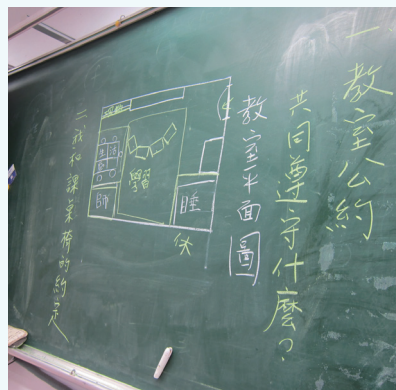 一 教室公約
共同遵守什麼？
教室平面圖
學習
生活
睡
師
二、我和課桌椅的約定